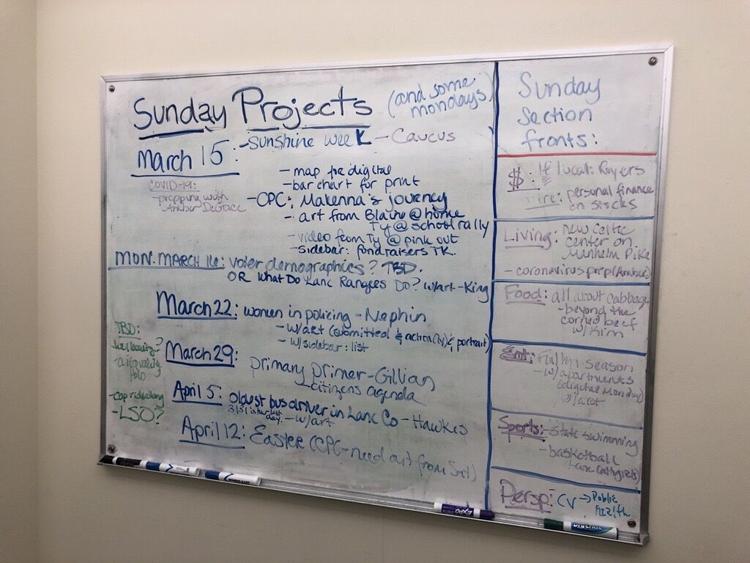 Sunday Projects (and some mondays)
March 15: - Sunshine Week - Caucus
- map for digital
- bar chart for print
COVID-19:
prepping with
Amber Devace
- CPC: Makenna's journey
- art from Blaine @ home
Ty @ school rally
- video from Ty @ pink out
- sidebar: fundraisers TK.
MON. MARCH 16: voter demographics? TBD.
OR What Do Lanc Rangers Do? w/art - King
March 22: women in policing - Nephin
- w/art (submitted & action (Ty) & portrait)
- w/sidebar: list
March 29: primary primer - Gillian
- citizens agenda
April 5: oldest bus driver in Lanc Co - Hawkes
- w/art
April 12: Easter (CPC - need art from
TBD:
- cop ridealong
- LSO?
Sunday
Section
fronts:
$: local: Rayers
wire: personal finance
on stocks
Living: new Celtic
center on
Manheim Pike
- coronavirus prep (Amber)
Food: all about cabbage
- beyond the
corned beef
w/Kim
Ent: season
Sports: - State swimming
- basketball
Persp: CV → Public
Health
EXPO